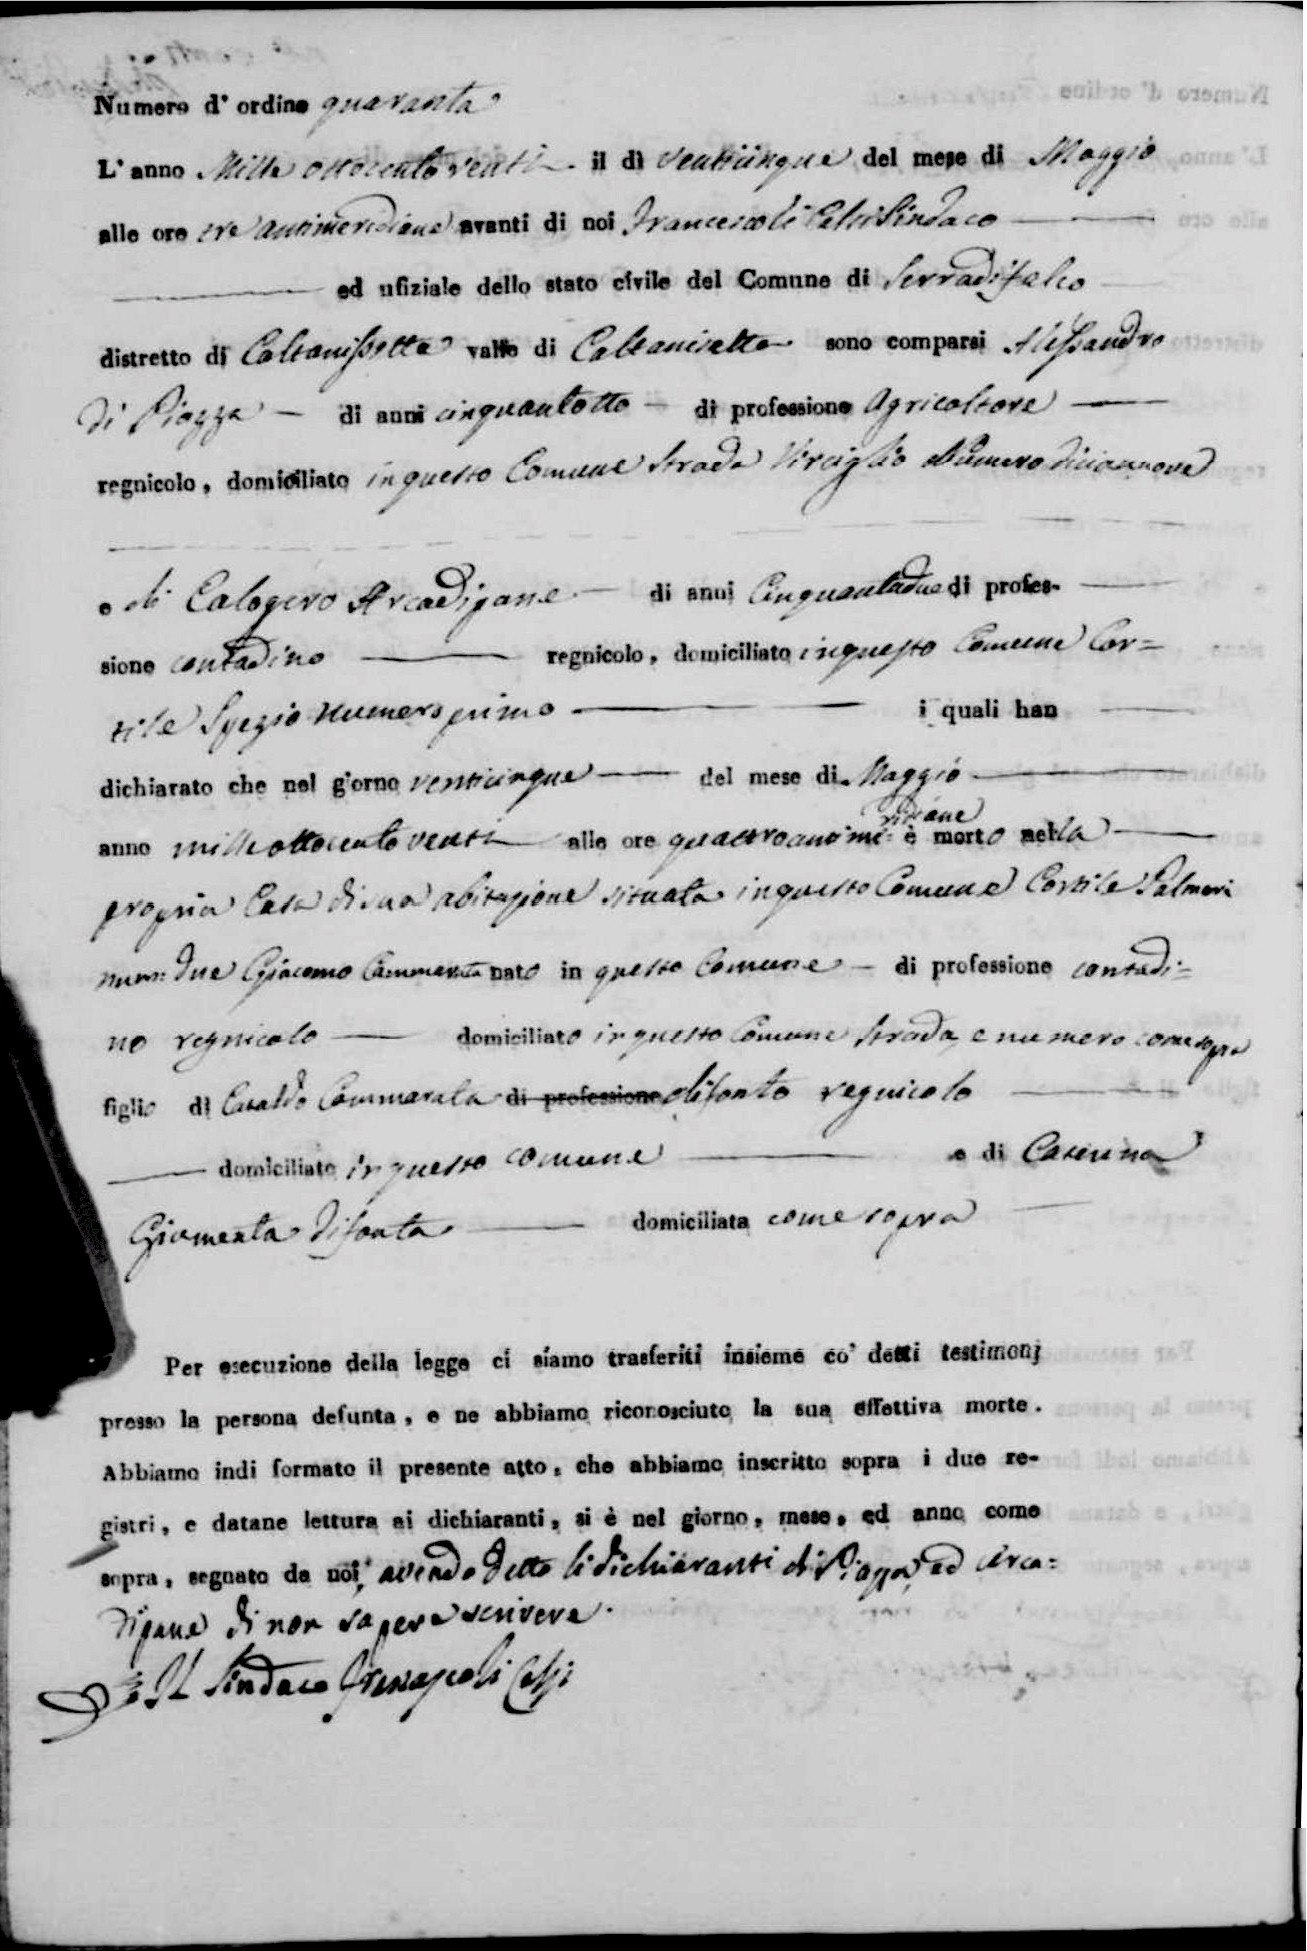 Numero d' ordine quaranta
L' anno Mille ottocento venti il di venticinque del mese di Maggio
alle ore tre antimeridiane avanti di noi Sindaco
ed ufiziale dello stato civile del Comune di Serradifalco
distretto di Caltanissetta valle di Caltanisetta sono comparsi Alessandro
di Piazza di anni cinquantotto di professione Agricoltore
regnicolo, domiciliato in questo Comune Strada Numero diciannove
e di Calogero Arcadipane di anni Cinquantadue di profes-
sione contadino regnicolo, domiciliato in questo Comune Cor=
tile Spezio numero primo i quali han
dichiarato che nel giorno venticinque del mese di Maggio
anno mille ottocento venti alle ore quattro antimeridiane è morto nella
propria Casa di sua abitazione situata in questo Comune Cortile Palmeri
num: due Giacomo Cammarata nato in questo Comune di professione contadi=
no regnicolo domiciliato in questo Comune Strada, e numero come sopra
figlio di Cataldo Cammarata di professione difonto regnicolo
domiciliato in questo comune e di Caterina
Giamenta difonta domiciliata come sopra
Per esecuzione della legge ci siamo trasferiti insieme co' detti testimonj
presso la persona defunta, e ne abbiamo riconosciuto la sua effettiva morte.
Abbiamo indi formato il presente atto, che abbiamo inscritto sopra i due re-
gistri, e datane lettura ai dichiaranti, si è nel giorno, mese, ed anno come
sopra, segnato da noi, avendo detto li dichiaranti di Piazza, ed Arca=
dipane di non sapere scrivere.
Il Sindaco